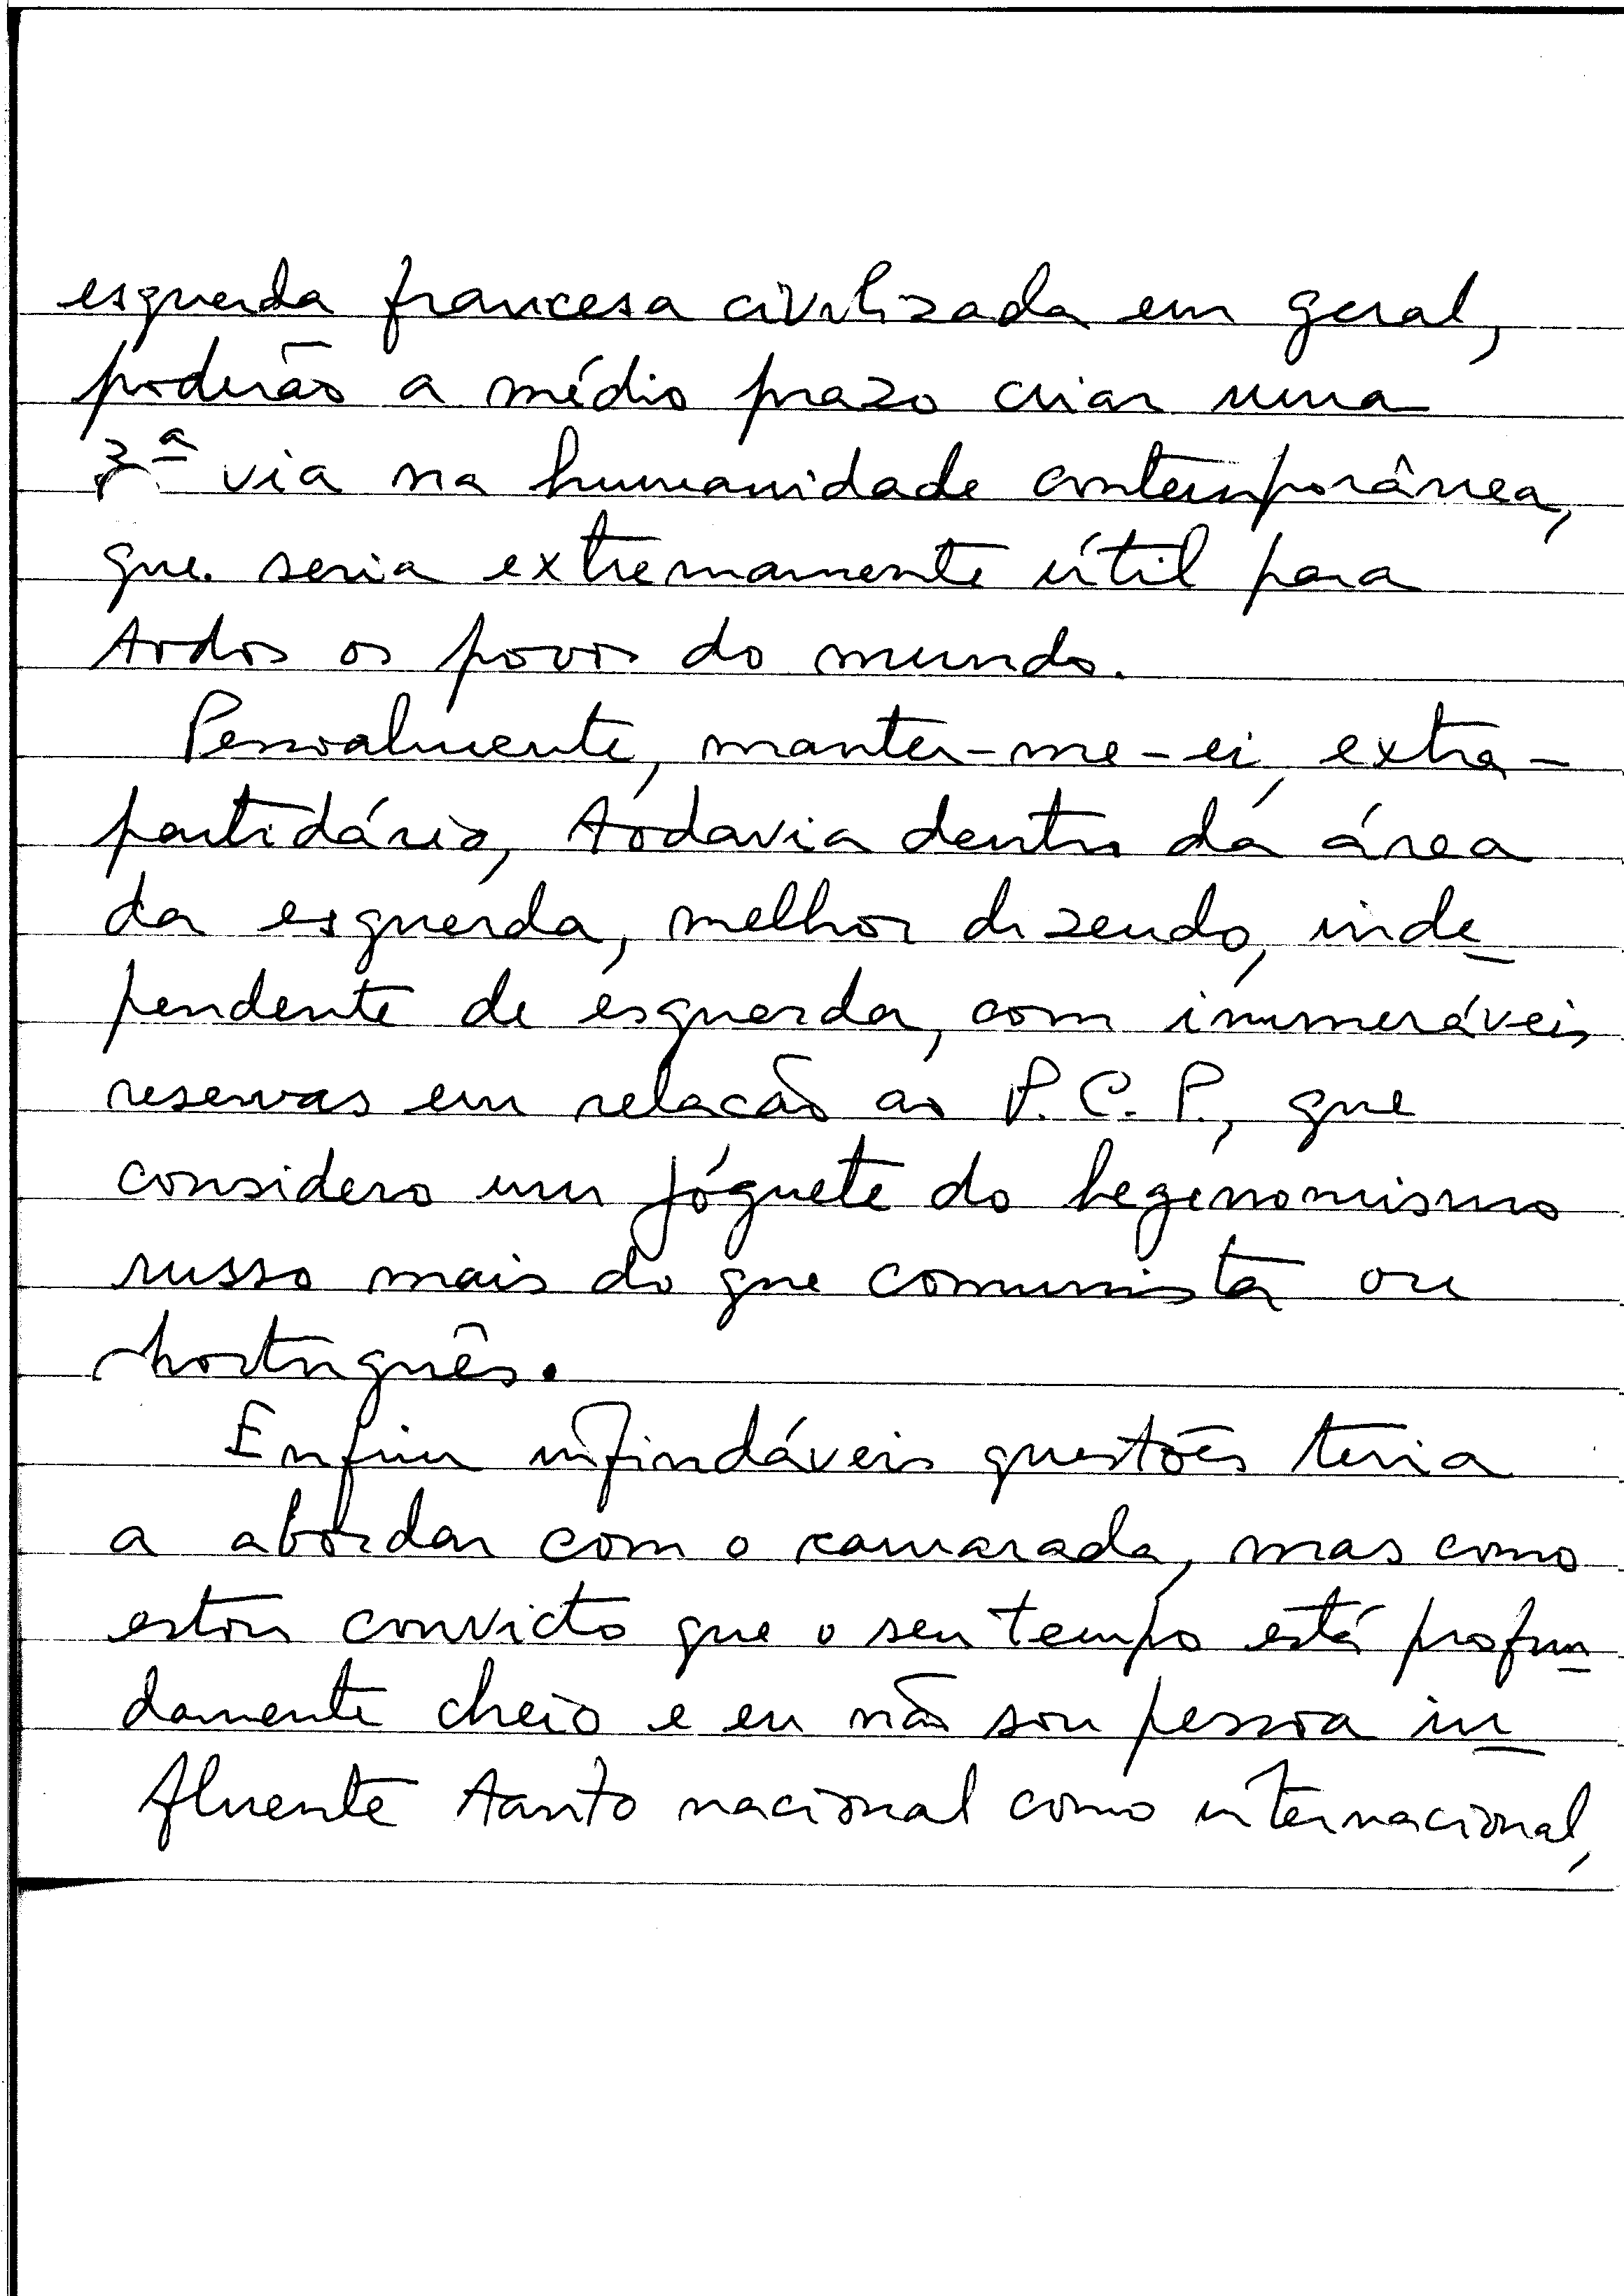 esquerda francesa civilizada em geral,
poderão a médio prazo criar uma
3ª via na humanidade contemporânea,
que seria extremamente útil para
todos os povos do mundo.
Pessoalmente, manter-me-ei, extra-
partidário, todavia dentro da área
da esquerda, melhor dizendo, inde
pendente de esquerda, com inumeráveis
reservas em relacão ao P.C.P., que
considero um jóguete do hegenomismo
russo mais do que comunista ou
português.
Enfim infindáveis questões teria
a abordar com o camarada, mas como
estou convicto que o seu tempo está profun
damente cheio e eu não sou pessoa in
fluente tanto nacional como internacional,